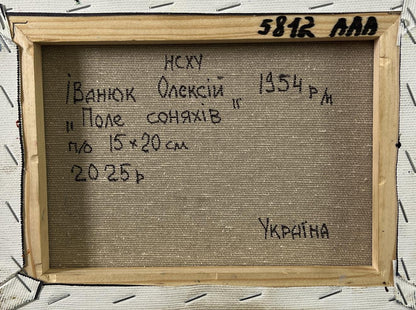 5842 ААА
НСХУ
Іванюк Олексій 1954 р/н
"Поле соняхів"
п/о 15×20 см
2025р
Україна